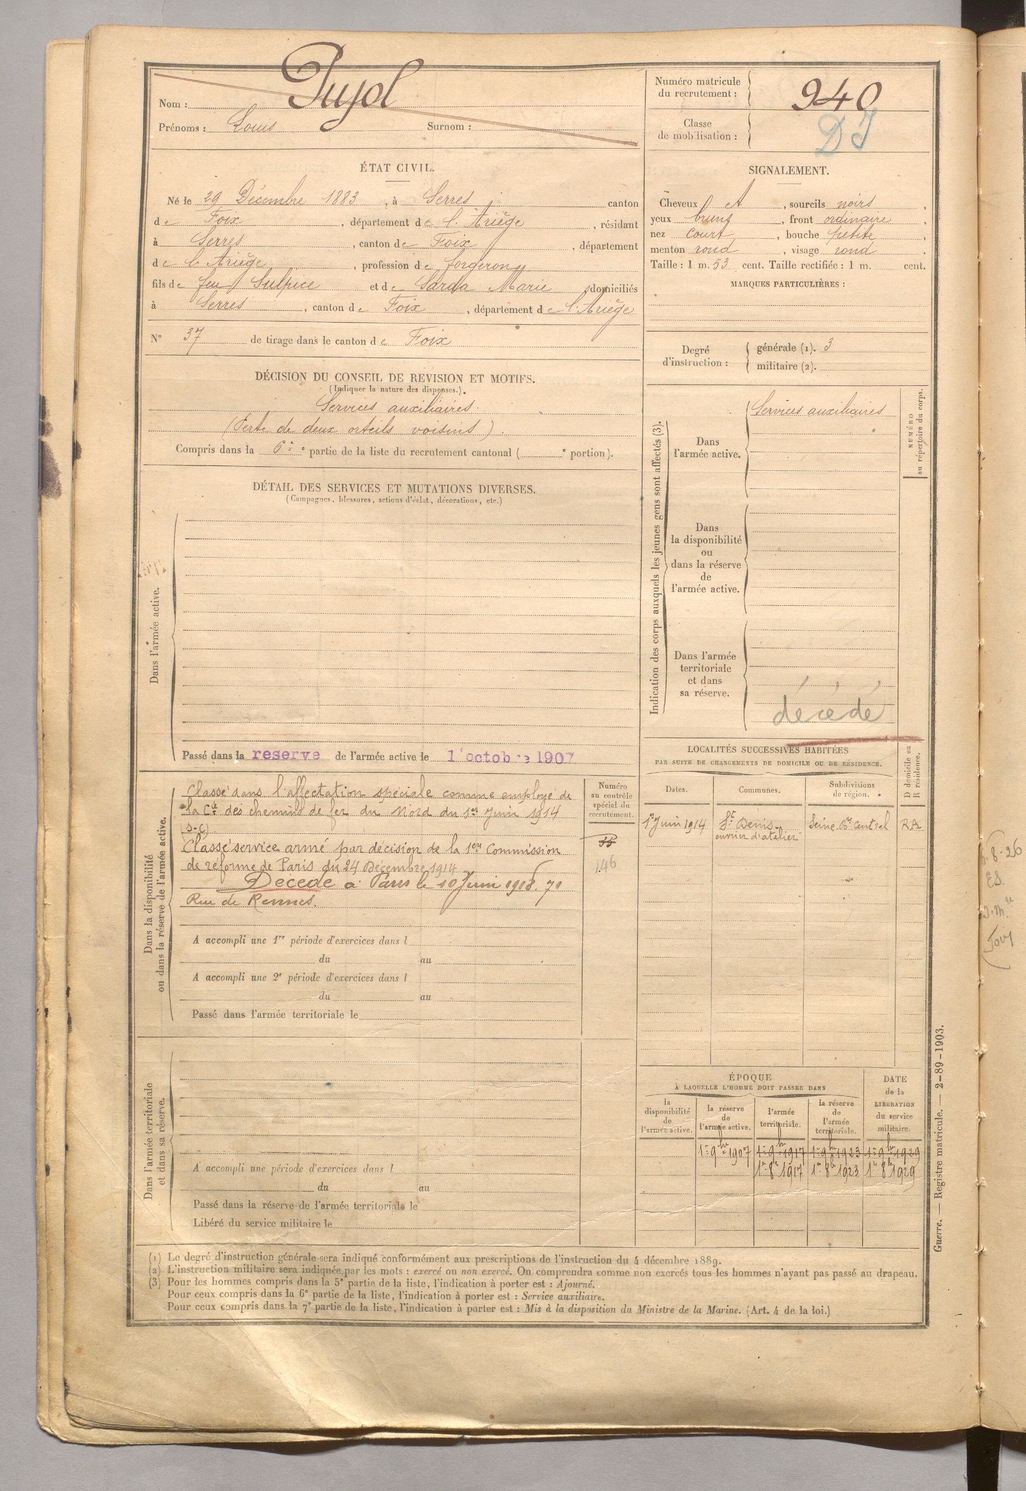 Nom : Pujol
Prénoms : Louis Surnom :
Numéro matricule
du recrutement : 940
Classe
de mobilisation :
DI
ÉTAT CIVIL.
Né le 29 Décembre 1883, à Serres canton
de Foix, département de l'Ariège, résidant
à Serres, canton de Foix, département
de l'Ariège, profession de forgeron
fils de feu Sulpice et de Sarda Marie domiciliés
à Serres, canton de Foix, département de l'Ariège
N° 37 de tirage dans le canton de Foix
SIGNALEMENT.
Cheveux A, sourcils noirs
yeux bruns, front ordinaire
nez court, bouche petite
menton rond, visage rond
Taille : 1 m. 53 cent. Taille rectifiée : 1 m. cent.
MARQUES PARTICULIÈRES :
Degré
d'instruction :
générale (1). 3
militaire (2).
DÉCISION DU CONSEIL DE REVISION ET MOTIFS.
(Indiquer la nature des dispenses.)
Services auxiliaires.
(Perte de deux orteils voisins).
Compris dans la 6e partie de la liste du recrutement cantonal ( e portion).
DÉTAIL DES SERVICES ET MUTATIONS DIVERSES.
(Campagnes, blessures, actions d'éclat, décorations, etc.)
Dans l'armée active.
Passé dans la reserve de l'armée active le 1 octobre 1907
Indication des corps auxquels les jeunes gens sont affectés (3).
Dans
l'armée active.
Services auxiliaires
NUMÉRO
au répertoire du corps.
Dans
la disponibilité
ou
dans la réserve
de
l'armée active.
Dans l'armée
territoriale
et dans
sa réserve.
décédé
Dans la disponibilité
ou dans la réserve de l'armée active.
Classé dans l'affectation spéciale comme employé de
la Cie des chemins de fer du Nord du 1er Juin 1914
(s.c)
Classé service armé par décision de la 1ère Commission
de réforme de Paris du 24 Décembre 1914
Décédé à Paris le 10 Juin 1918. 71
Rue de Rennes.
Numéro
au contrôle
spécial du
recrutement.
146
A accompli une 1re période d'exercices dans l
du au
A accompli une 2e période d'exercices dans l
du au
Passé dans l'armée territoriale le
LOCALITÉS SUCCESSIVES HABITÉES
PAR SUITE DE CHANGEMENTS DE DOMICILE OU DE RÉSIDENCE.
Dates. Communes. Subdivisions
de région.
D domicile ou
R résidence.
1er Juin 1914 St Denis Seine Bau central R.A
ouvrier d'atelier
Dans l'armée territoriale
et dans sa réserve.
A accompli une période d'exercices dans l
du au
Passé dans la réserve de l'armée territoriale le
Libéré du service militaire le
ÉPOQUE
À LAQUELLE L'HOMME DOIT PASSER DANS
DATE
de la
LIBÉRATION
du service
militaire.
la
disponibilité
de
l'armée active.
la réserve
de
l'armée active.
l'armée
territoriale.
la réserve
de
l'armée
territoriale.
1er 9bre 1907 1er 9bre 1917 1er 9bre 1923 1er 9bre 1929
1er 8bre 1917 1er 8bre 1923 1er 8bre 1929
(1) Le degré d'instruction générale sera indiqué conformément aux prescriptions de l'instruction du 4 décembre 1889.
(2) L'instruction militaire sera indiquée par les mots : exercé ou non exercé. On comprendra comme non exercés tous les hommes n'ayant pas passé au drapeau.
(3) Pour les hommes compris dans la 5e partie de la liste, l'indication à porter est : Ajourné.
Pour ceux compris dans la 6e partie de la liste, l'indication à porter est : Service auxiliaire.
Pour ceux compris dans la 7e partie de la liste, l'indication à porter est : Mis à la disposition du Ministre de la Marine. (Art. 4 de la loi.)
Guerre. — Registre matricule. — 2-89-1903.